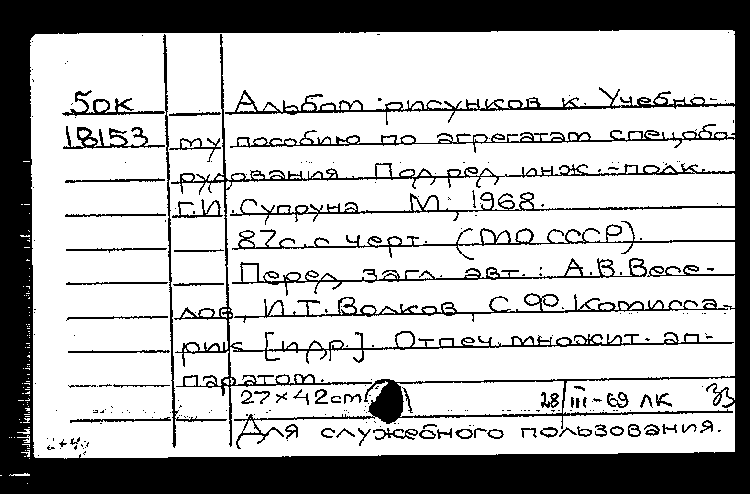 50к Альбом рисунков к Учебно-
18153 му пособию по агрегатам спецобо-
рудования. Под ред. инж.-полк.
Г.И. Супруна. М., 1968.
87с. с черт. (МО СССР).
Перед загл. авт.: А.В. Весе-
лов, И.Т. Волков, С.Ф. Комисса-
рик [и др.]. Отпеч. множит. ап-
паратом.
27×42cm 28/III-69 ЛК
Для служебного пользования.